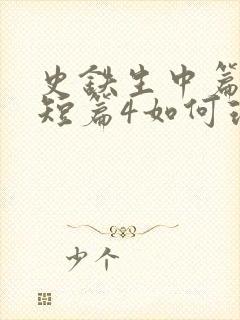 史铁生中篇
短篇4如何
少个